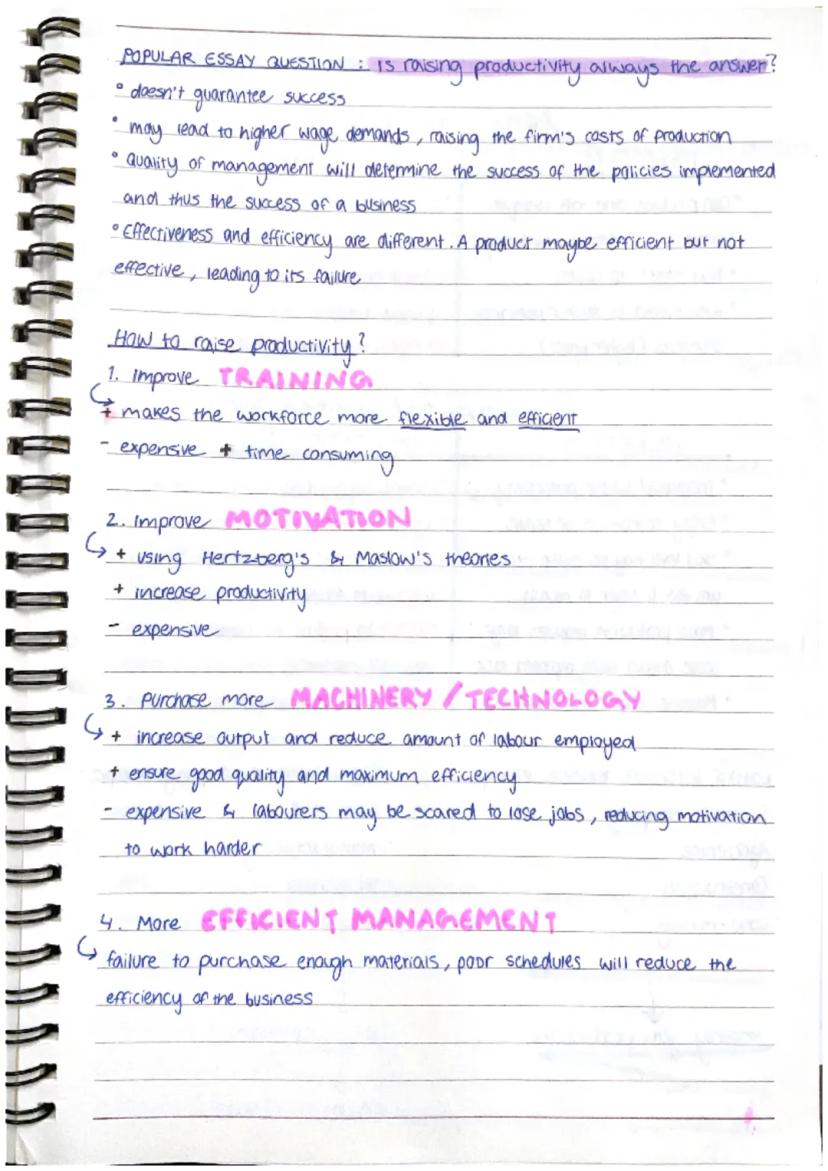 POPULAR ESSAY QUESTION : Is raising productivity always the answer?
° doesn't guarantee success
° may lead to higher wage demands, raising the firm's costs of production
° Quality of management will determine the success of the policies implemented
and thus the success of a business
° Effectiveness and efficiency are different. A product maybe efficient but not
effective, leading to its failure
How to raise productivity?
1. Improve TRAINING
+ makes the workforce more flexible and efficient
- expensive + time consuming
2. Improve MOTIVATION
+ using Hertzberg's & Maslow's theories
+ increase productivity
- expensive
3. Purchase more MACHINERY / TECHNOLOGY
+ increase output and reduce amount of labour employed
+ ensure good quality and maximum efficiency
- expensive & labourers may be scared to lose jobs, reducing motivation
to work harder
4. More EFFICIENT MANAGEMENT
failure to purchase enough materials, poor schedules will reduce the
efficiency of the business